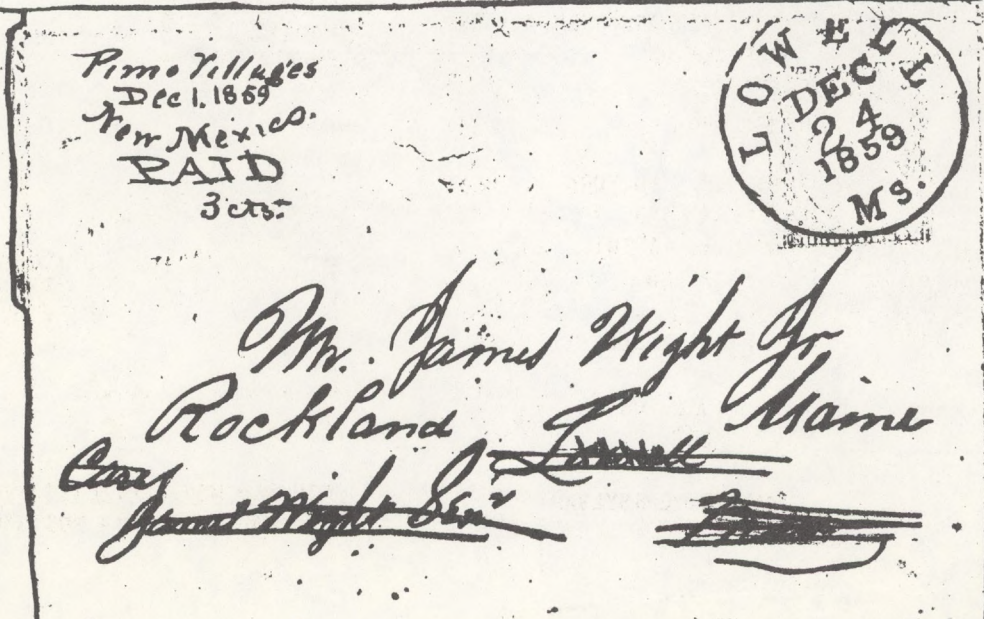 Pimo Villages
Dec 1. 1859
New Mexico.
PAID
3 cts.
LOWELL
DEC
24
1859
Ms.
Mr. James Wight Jr
Rockland Maine
Lowell
Care
James Wight Sen